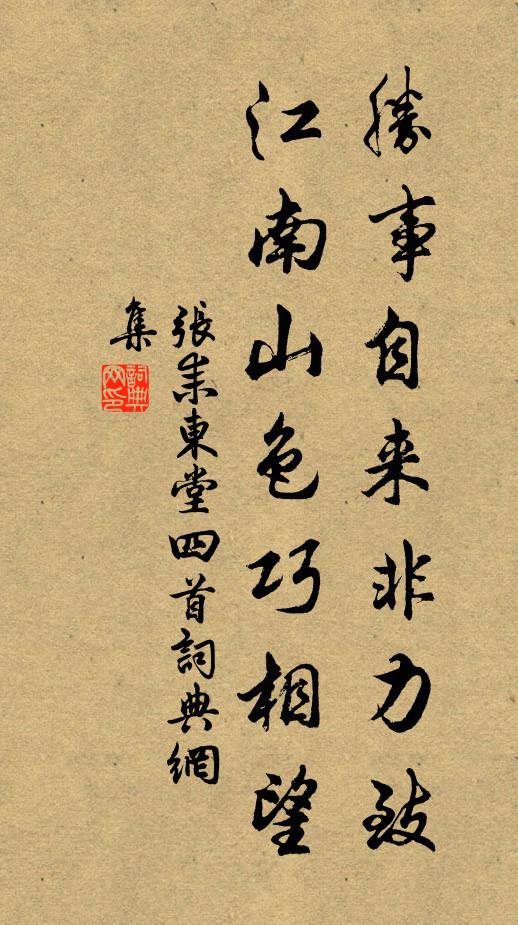 勝事自来非力致
江南山色巧相望
張耒東堂四首詞典網
集
詞典
网印